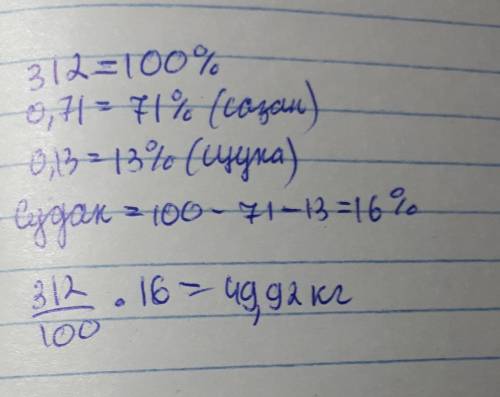 312=100%
0,71=71% (сазан)
0,13=13% (щука)
Судак=100-71-13=16%
312/100 · 16=49,92кг